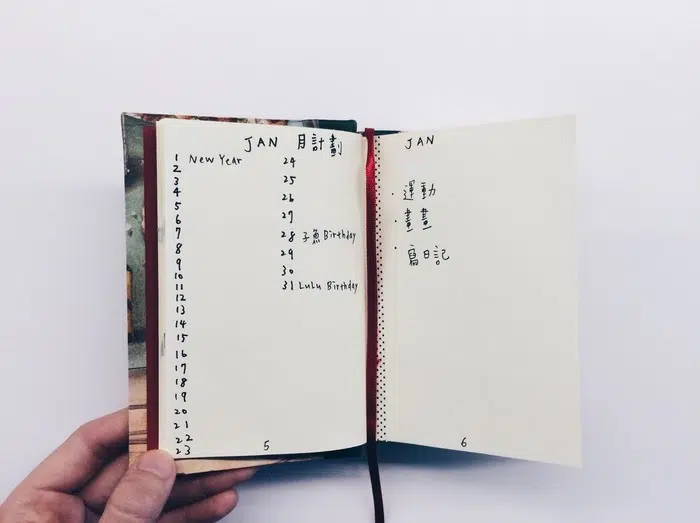 JAN 月計劃
1 New Year
2
3
4
5
6
7
8
9
10
11
12
13
14
15
16
17
18
19
20
21
22
23
24
25
26
27
28 子魚 Birthday
29
30
31 LuLu Birthday
5
JAN
· 運動
· 畫畫
· 寫日記
6